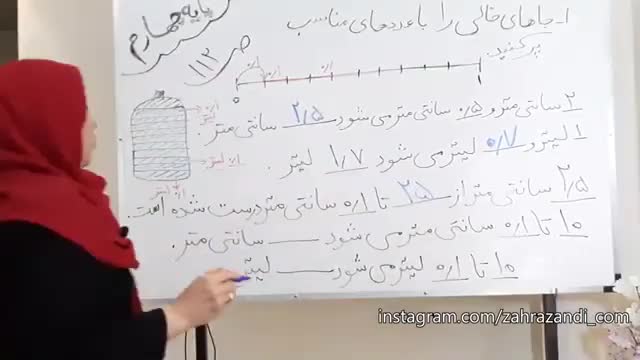 پایه چهارم
ص ۱۱۳
۱- جاهای خالی را با عددهای مناسب
پر کنید.
۰ ۰/۱ ۰/۱ ۰/۱ ۱
۲ سانتی متر و ۰/۵ سانتی متر می شود ۲/۵ سانتی متر.
۱ لیتر و ۰/۷ لیتر می شود ۱/۷ لیتر.
۰/۱ لیتر
۰/۱ لیتر
۲/۵ سانتی متر از ۲۵ تا ۰/۱ سانتی متر درست شده است.
۱۰ تا ۰/۱ سانتی متر می شود ___ سانتی متر.
۱۰ تا ۰/۱ لیتر می شود ___ لیتر
instagram.com/zahrazandi_com